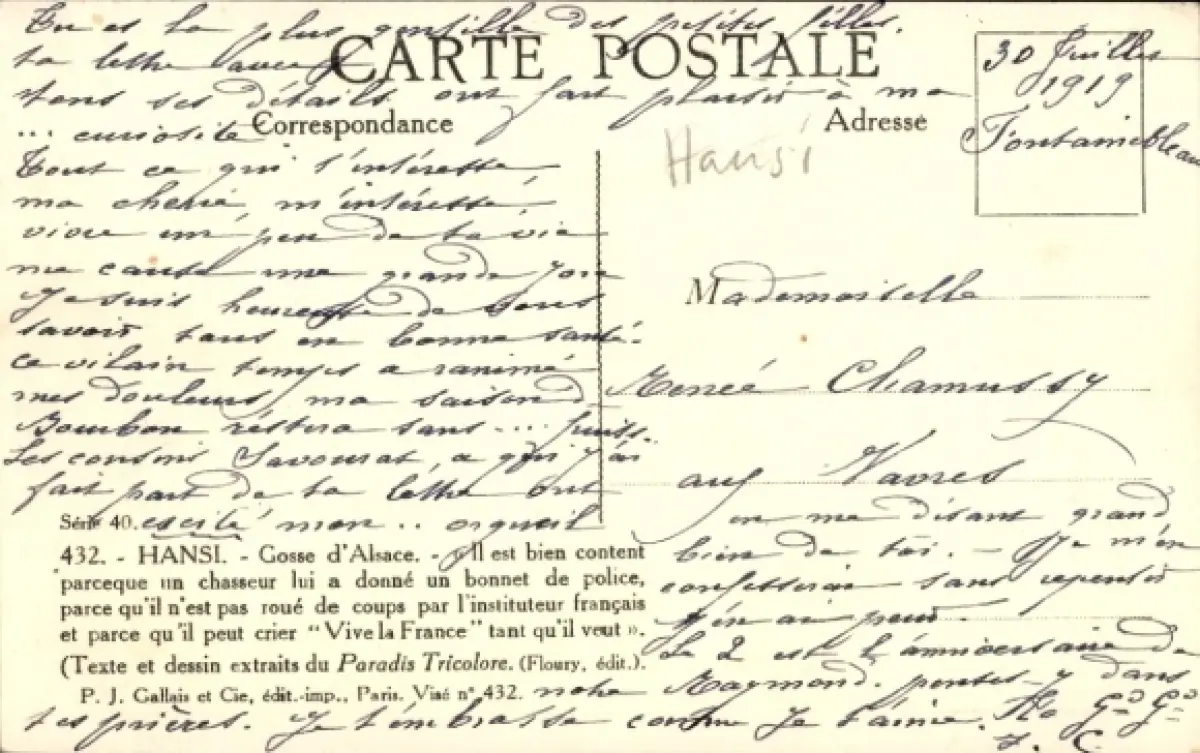 Tu es la plus gentille des petites filles.
ta lettre avec
CARTE POSTALE
tous ses détails ont fait plaisir à ma
... curiosité
Correspondance
Tout ce qui t'intéresse,
ma cherie, m'intéresse,
vivre un peu de ta vie
me cause une grande joie
Je suis heureuse de vous
savoir tous en bonne santé.
Ce vilain temps a ranimé
mes douleurs, ma saison d
Bourbon restera sans ....
Les cousins Savourat, a qui j'ai
fait part de ta lettre ont
excité mon .. orgueil
Série 40.
432. - HANSI. - Gosse d'Alsace. - Il est bien content
parceque un chasseur lui a donné un bonnet de police,
parce qu'il n'est pas roué de coups par l'instituteur français
et parce qu'il peut crier "Vive la France" tant qu'il veut ».
(Texte et dessin extraits du Paradis Tricolore. (Floury, édit.).
P. J. Gallais et Cie, édit.-imp., Paris. Visé n° 432.
Adresse
Hansi
30 Juillet
1919
Fontainebleau
Mademoiselle
Renée Chamussy
aux Navres
en me disant grand
bien de toi. - Je m'en
confesserai sans repentir
j'en ai peur.
Le 2 est l'anniversaire de
notre Raymond. penses-y dans
tes prières. Je t'embrasse comme je t'aime. Ta Gd Gd
J. C